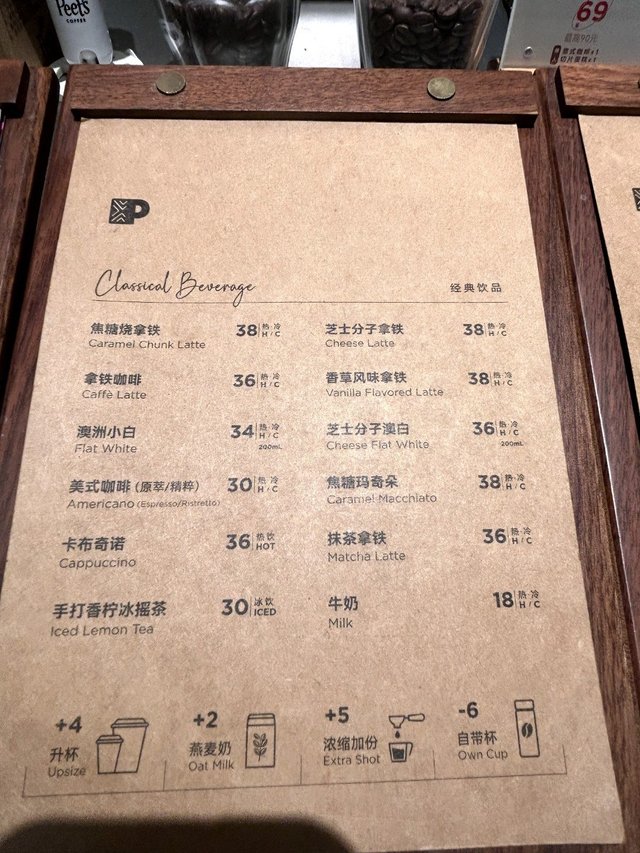 Peet's
COFFEE
69
最高90元
意式咖啡x1
切片蛋糕x1
P
Classical Beverage 经典饮品
焦糖烧拿铁 38 热·冷
Caramel Chunk Latte H/C
芝士分子拿铁 38 热·冷
Cheese Latte H/C
拿铁咖啡 36 热·冷
Caffè Latte H/C
香草风味拿铁 38 热·冷
Vanilla Flavored Latte H/C
澳洲小白 34 热·冷
Flat White H/C
200mL
芝士分子澳白 36 热·冷
Cheese Flat White H/C
200mL
美式咖啡 (原萃/精粹) 30 热·冷
Americano (Espresso/Ristretto) H/C
焦糖玛奇朵 38 热·冷
Caramel Macchiato H/C
卡布奇诺 36 热饮
Cappuccino HOT
抹茶拿铁 36 热·冷
Matcha Latte H/C
手打香柠冰摇茶 30 冰饮
Iced Lemon Tea ICED
牛奶 18 热·冷
Milk H/C
+4
升杯
Upsize
+2
燕麦奶
Oat Milk
+5
浓缩加份
Extra Shot
-6
自带杯
Own Cup